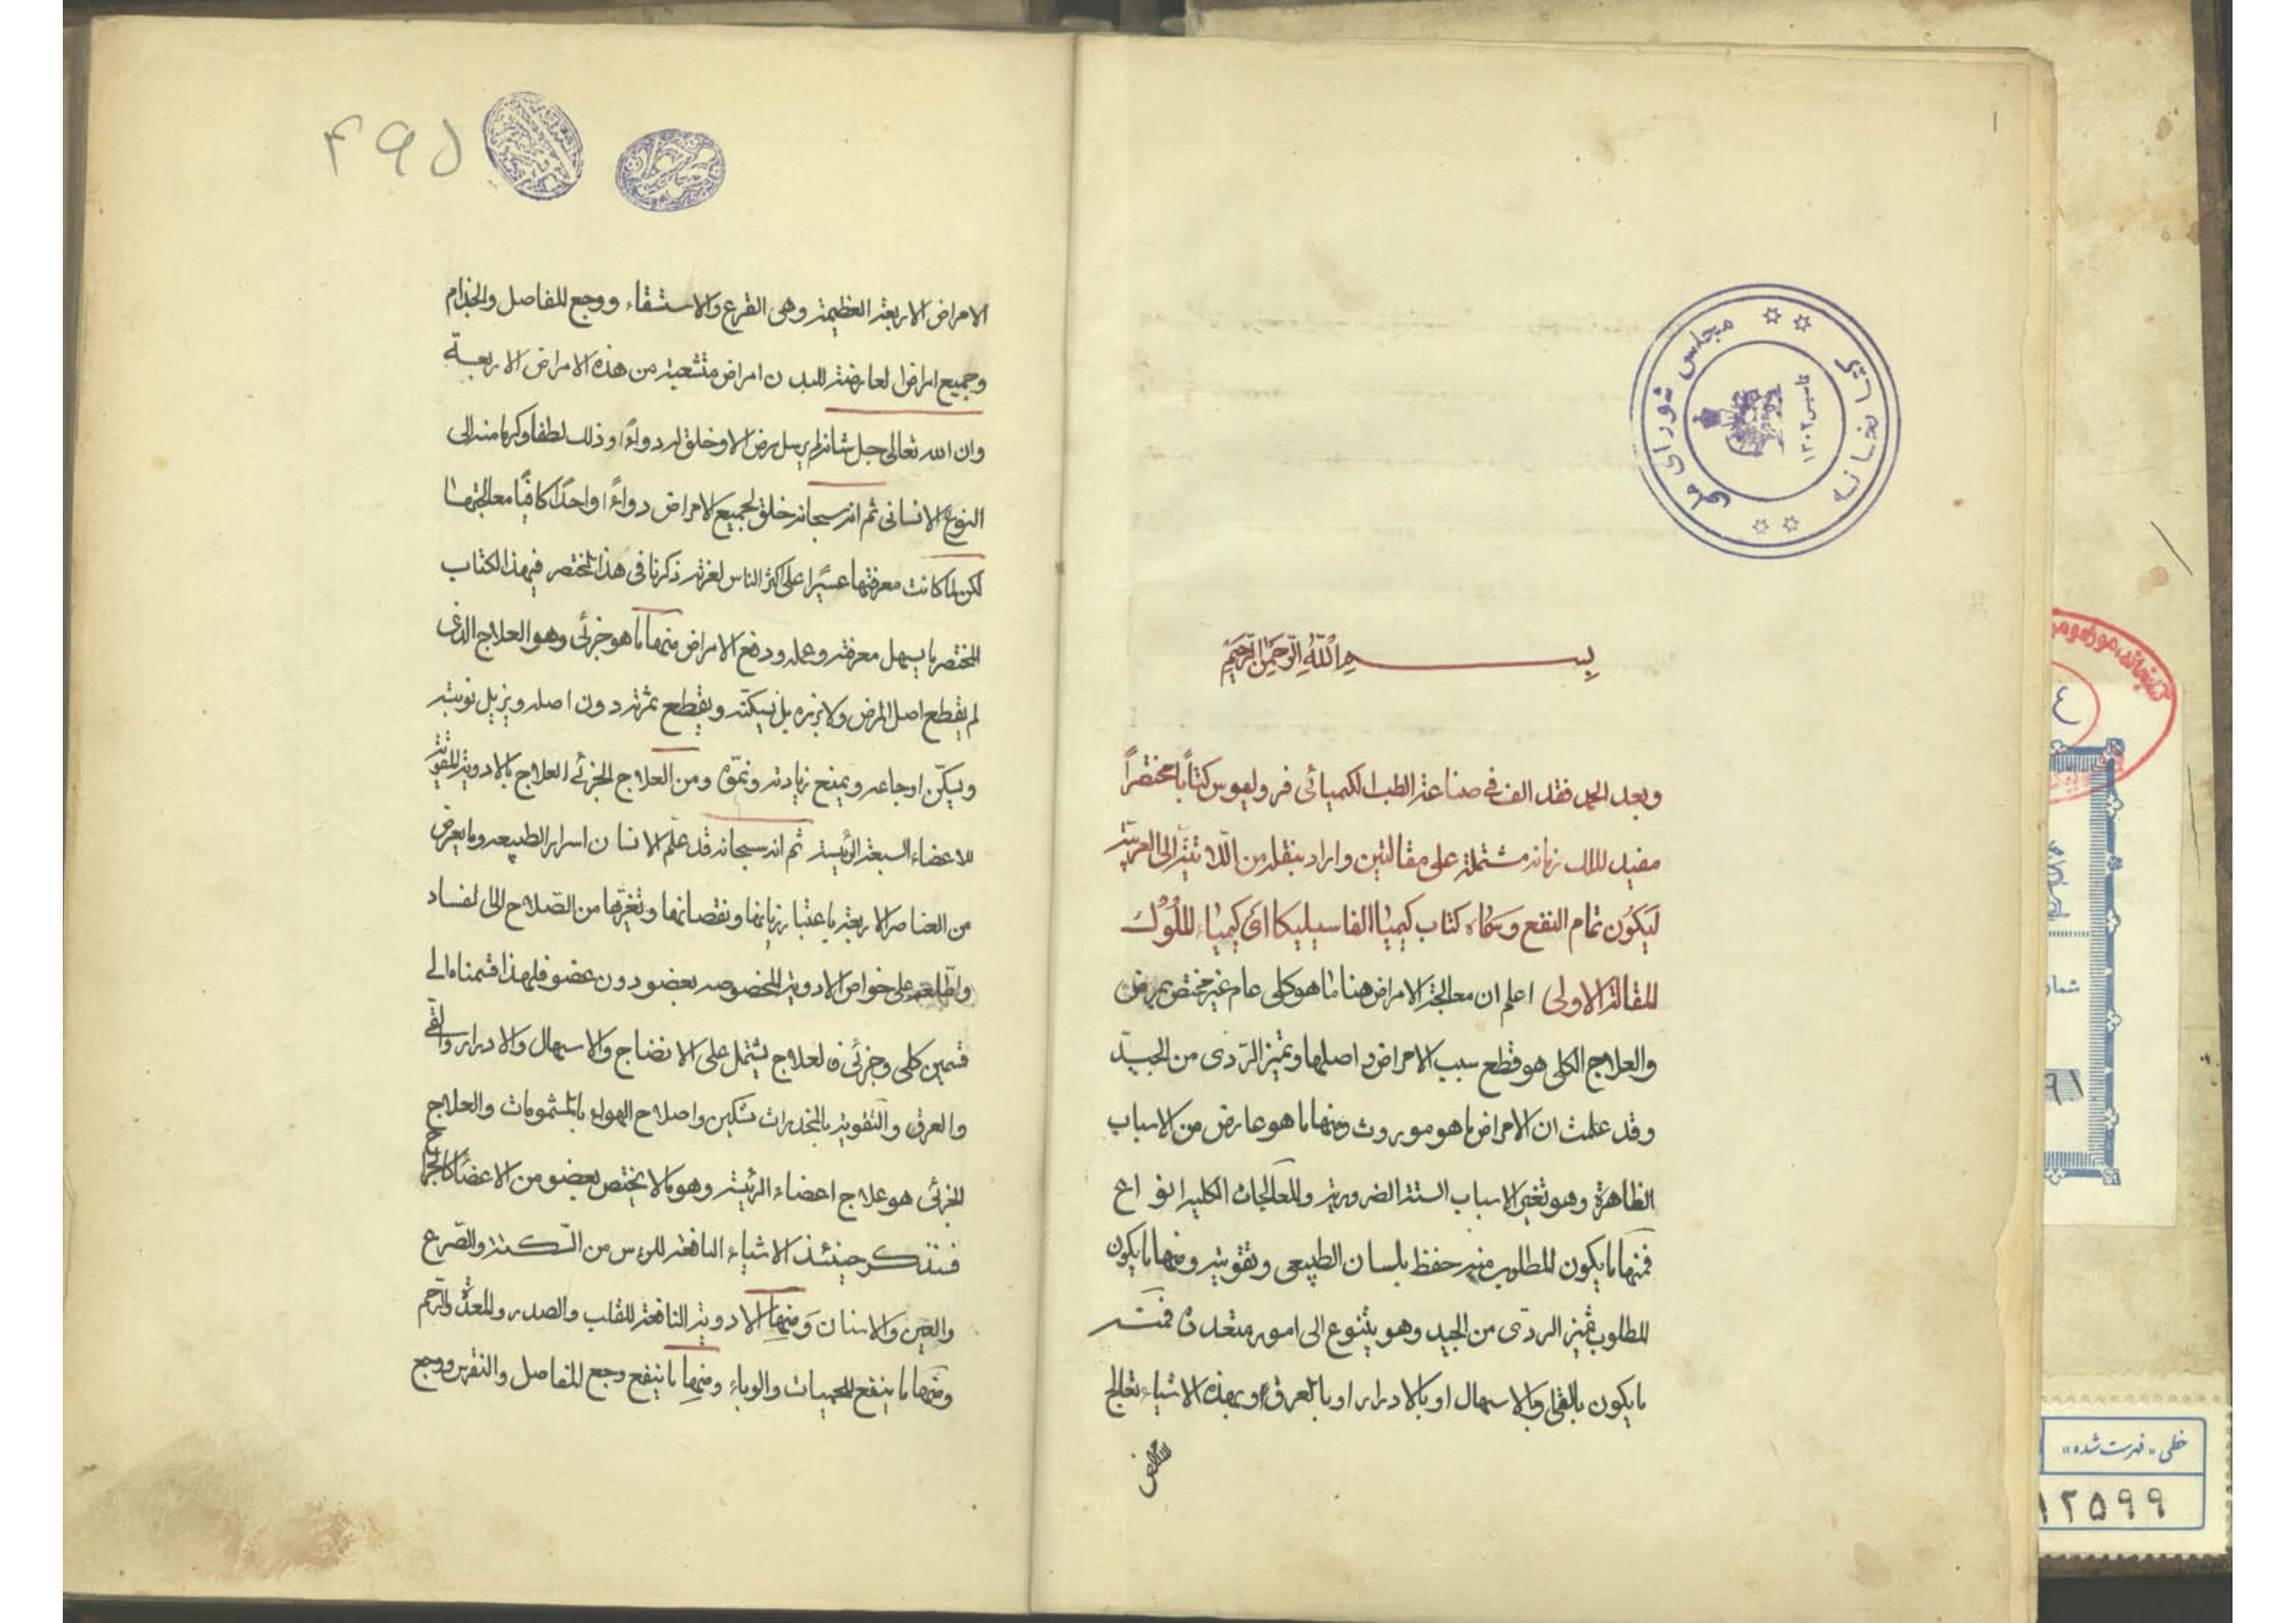 بسم الله الرحمن الرحيم
وبعد الحمد فقد الف فى صناعة الطب الكميائى فرولیوس كتاباً مختصراً
مفيد لملك زمانه مشتملة على مقالتين واراد بنقله من اللاتينية الى العربية
ليكون تمام النفع وسماه كتاب كيميا الفاسيليكا اى كيمياء الملوك
المقالة الاولى اعلم ان معالجة الامراض هنا ما هو كلى عام غير مختص بمرض
والعلاج الكلى هو قطع سبب الامراض واصلها وتميز الردى من الجيد
وقد علمت ان الامراض ما هو موروث ومنها ما هو عارض من الاسباب
الظاهرة وهو تغير الاسباب الستة الضرورية والمعالجات الكلية انواع
فمنها ما يكون المطلوب منه حفظ بلسان الطبيعى وتقويته ومنها ما يكون
المطلوب تميز الردى من الجيد وهو يتنوع الى امور متعددة فمنه
ما يكون بالقى وبالاسهال او بالادرار او بالعرق وبهذه الاشياء تعالج
الامراض
الامراض الاربعة العظيمة وهى القرع والاستسقاء ووجع المفاصل والجذام
وجميع امراض العارضة للبدن امراض متشعبة من هذه الامراض الاربعة
وان الله تعالى جل شانه لم يرسل مرض الا وخلق له دواءً وذلك لطفا وكرما منه الى
النوع الانسانى ثم انه سبحانه خلق لجميع الامراض دواءً واحداً كافياً معالجتها
لكن لما كانت معرفتها عسيراً على اكثر الناس لعزته ذكرنا فى هذا المختصر فبهذا الكتاب
المختصر ما يسهل معرفته وعمله ودفع الامراض منها ما هو جزئى وهو العلاج الذى
لم يقطع اصل المرض ولا بزره بل يسكنه ويقطع ثمرته دون اصله ويزيل نوبته
ويسكن اوجاعه ويمنع زيادته ونموه ومن العلاج الجزئى العلاج بالادوية المقوية
للاعضاء السبعة الرئيسة ثم انه سبحانه قد علم الانسان اسرار الطبيعه وما يعرض
من العناصر الاربعة باعتبار زيادتها ونقصانها وتغيرها من الصلاح الى الفساد
واطلعه على خواص الادوية المخصوصه بعضو دون عضو فلهذا قسمناه الى
قسمين كلى وجزئى فالعلاج يشتمل على الانضاج والاسهال والادرار والقى
والعرق والتقوية بالمخدرات تسكين واصلاح الهواء بالمشمومات والعلاج
الجزئى هو علاج اعضاء الرئيسة وهو ما لا يختص بعضو من الاعضاء كالجراح
فنذكر حينئذ الاشياء النافعة للرؤس من السكتة والصرع
والعين والاسنان ومنها الادوية النافعة للقلب والصدر والمعدة والرحم
ومنها ما ينفع للحميات والوباء ومنها ما ينفع وجع المفاصل والنقرس ووجع
مجلس شورای ملی
کتابخانه
تاسیس ۱۳۰۲
خطی «فهرست شده»
۱۲۵۹۹